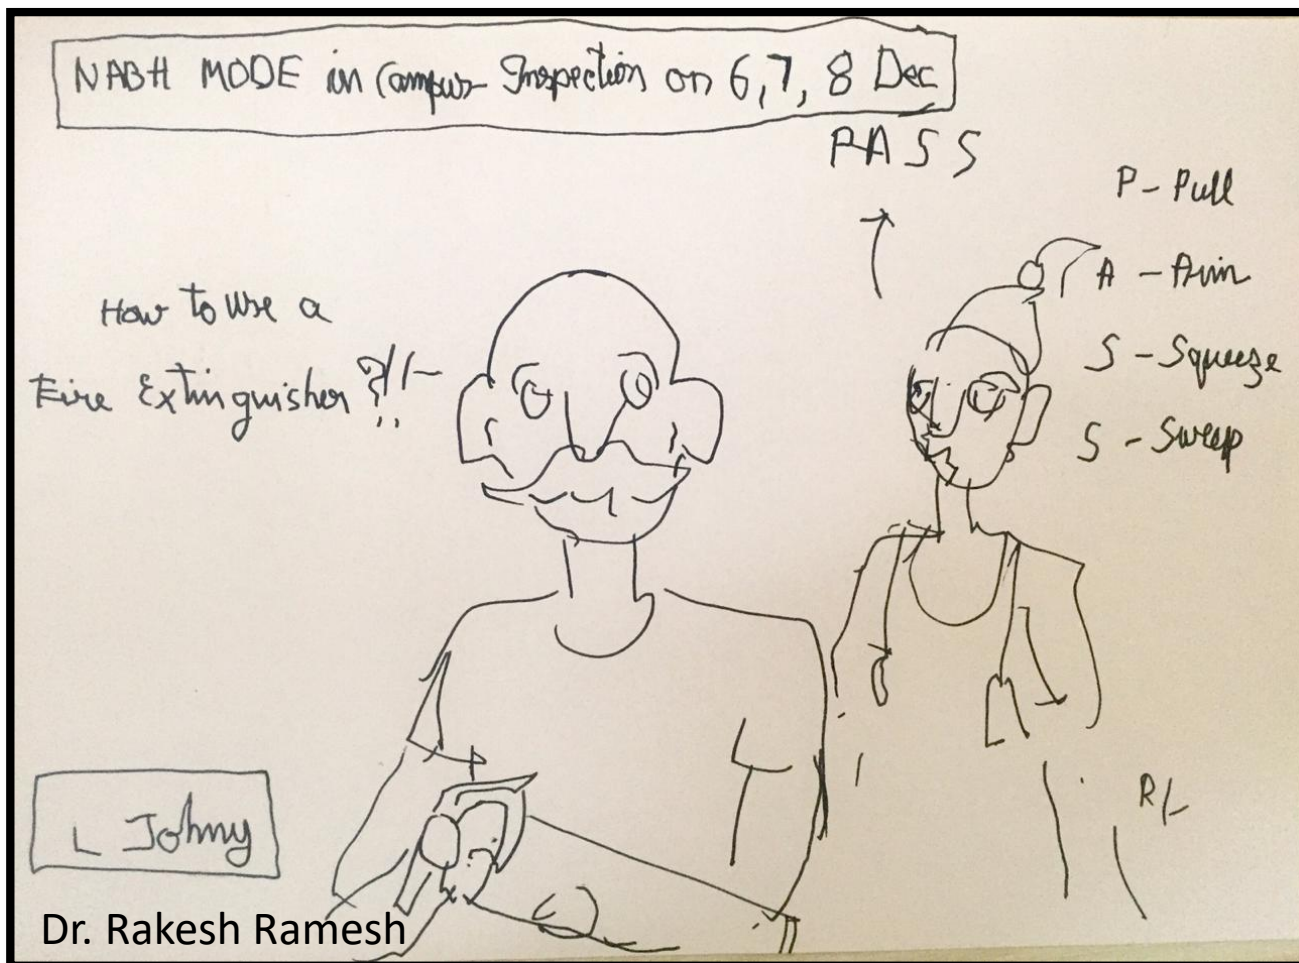 NABH MODE in Campus Inspection on 6, 7, 8 Dec
PASS
P - Pull
A - Aim
S - Squeeze
S - Sweep
How to use a
Fire Extinguisher ?!!
L Johny
R/L
Dr. Rakesh Ramesh